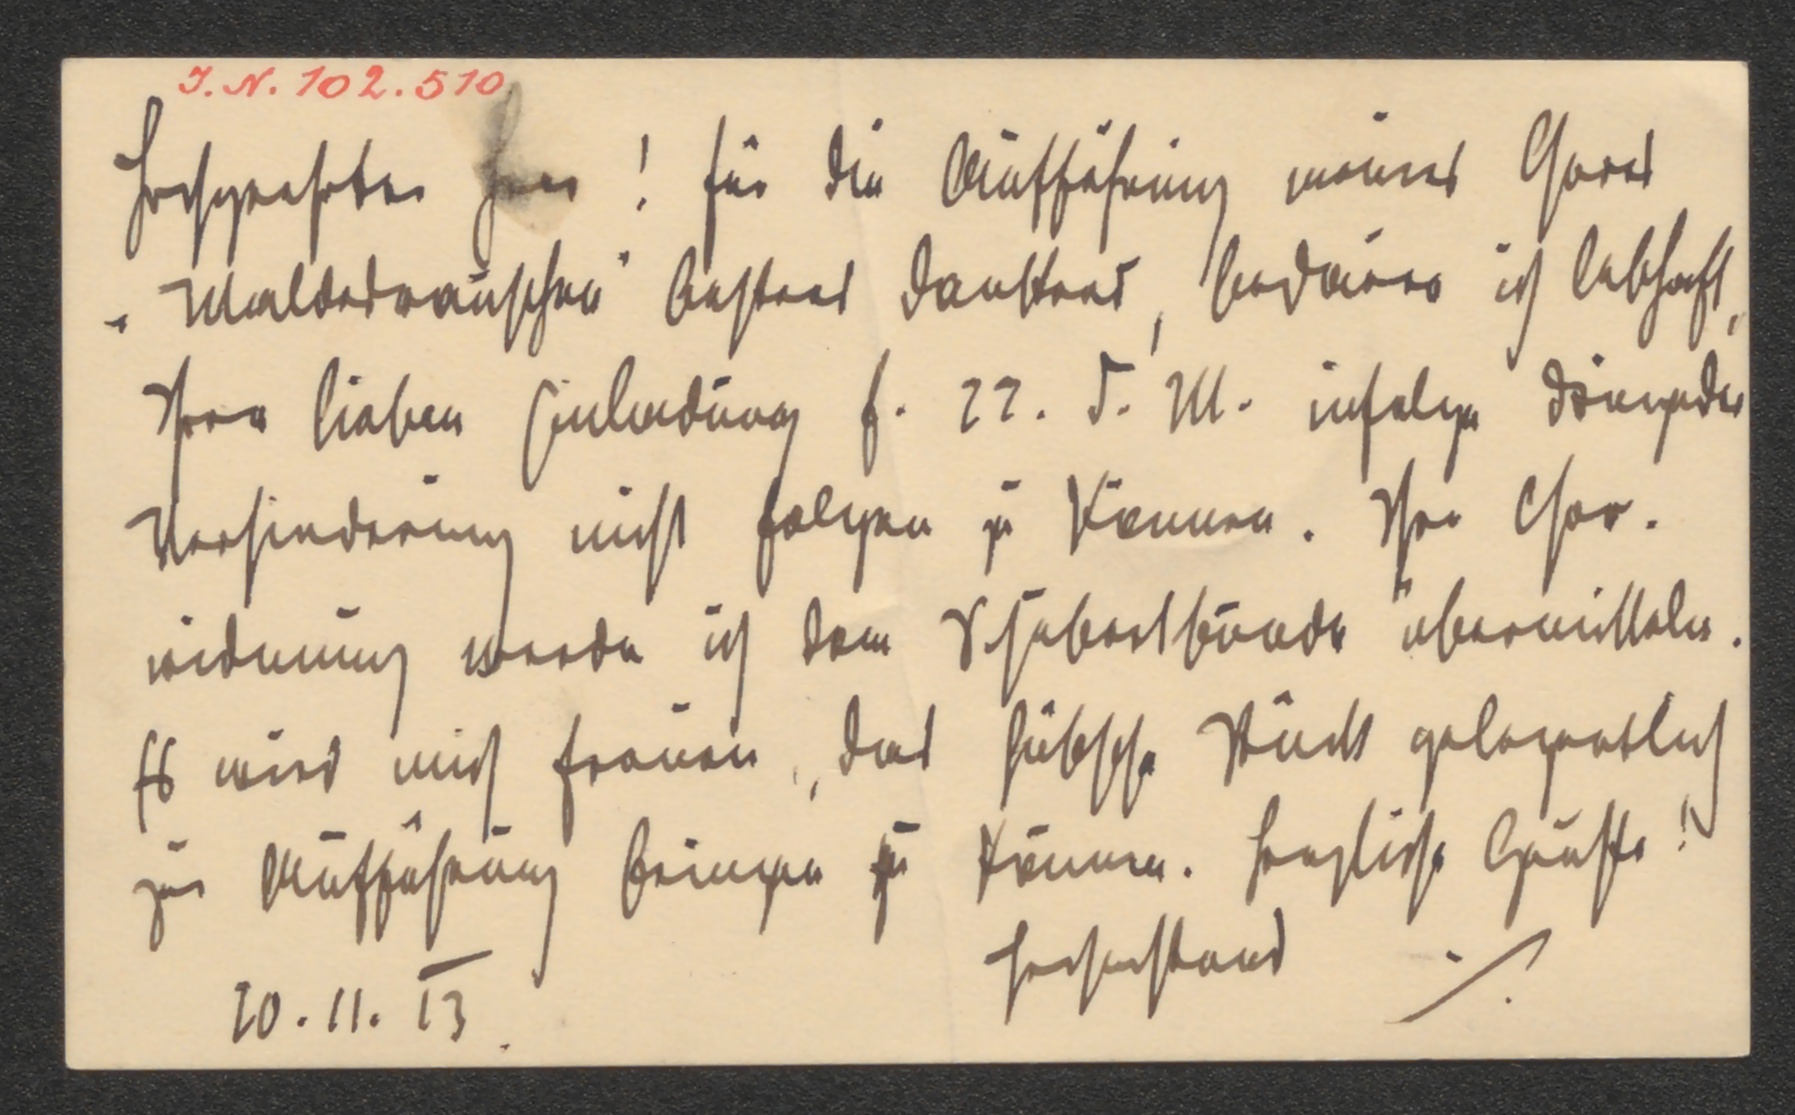 I. N. 102.510
Hochgeehrter Herr! Für die Aufführung meines Chores
„Waldesrauschen" bestens dankend, bedaure ich lebhaft,
Ihrer lieben Einladung f. 22. d. M. infolge dringender
Verhinderung nicht folgen zu können. Ihre Chor-
widmung werde ich dem Schubertbunde übermitteln.
Es wird mich freuen, das hübsche Stück gelegentlich
zur Aufführung bringen zu können. Herzliche Grüße!
Hochachtend
20. 11. 13